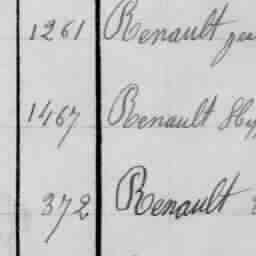 1261 Renault
1467 Renault Hyp
372 Renault